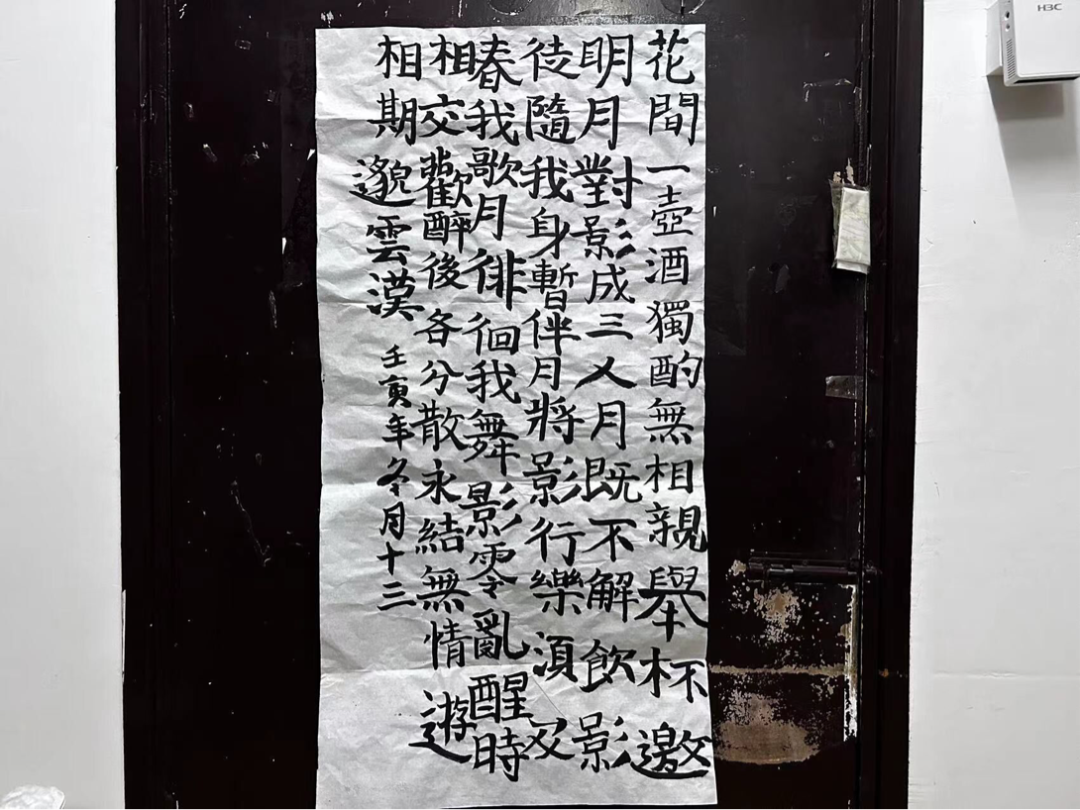 花間一壺酒獨酌無相親舉杯邀
明月對影成三人月既不解飲影
徒隨我身暫伴月將影行樂須及
春我歌月徘徊我舞影零亂醒時
相交歡醉後各分散永結無情遊
相期邈雲漢
壬寅年冬月十三
H3C